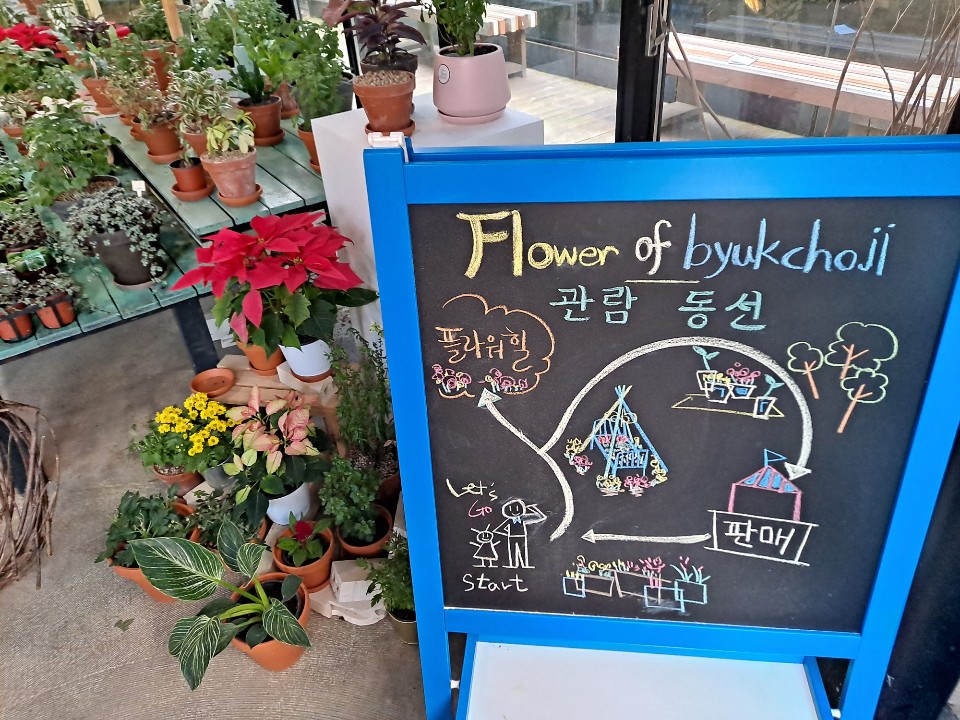 Flower of byukchoji
관람 동선
플라워힐
Let's
Go
start
판매